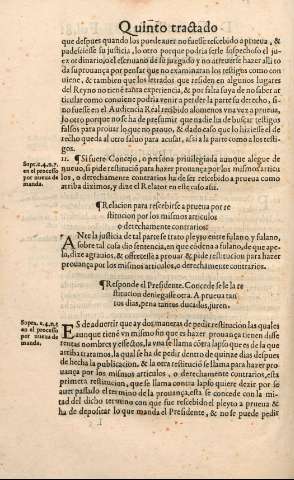 Quinto tractado
que despues quando los puede auer no fuesse recebido a prueua, &
padesciesse su justicia, lo otro porque podria serle sospechoso el juez
ordinario, o el escriuano de su juzgado y no atreuerse hazer alli to
da su prouança por pensar que no examinaran los testigos como con
uiene, & tambien que los letrados que residen en algunos lugares
del Reyno no tiené tanta experiencia, & por falta suya de no saber ar
ticular como conuiene podria venir a perder la parte su derecho, si
no fuesse en el Audiencia Real rescibido alomenos vna vez a prueua,
lo otro porque no se ha de presumir que nadie ha de buscar testigos
falsos para prouar lo que no prouo, & dado caso que lo hiziesse el de
recho queda al otro saluo para acusar, assi a la parte como a los testi-
gos.
Supr.c.4.n.7.
en el processo
por nueua de
manda.
11. ¶ Si fuere Concejo, o persona priuilegiada aunque alegue de
nueuo, si pide restitucion para hazer prouança por los mismos articu
los, o derechamente contrarios ha de ser recebido a prueua como
arriba diximos, y dize el Relator en este caso assi.
¶ Relacion para rescebirse a prueua por re
stitucion por los mismos articulos
o derechamente contrarios:
ANte la justicia de tal parte se trato pleyto entre fulano y fulano,
sobre tal cosa dio sentencia, en que códena a fulano, de que ape-
lo, dize agrauios, & offrescesse a prouar & pide restitucion para hazer
prouança por los mismos articulos, o derechamente contrarios.
¶ Responde el Presidente. Concedesele la re
stitucion deniegasse otra. A prueua tan
tos dias, pena tantos ducados, juren.
Supra. c.4.n.8
en el processo
por nueua de
manda.
ES de aduertir que ay dos maneras de pedir restitucion las quales
aunque tiené vn mismo fin que es hazer prouança tienen diffe
rentes nombres y effectos, la vna se llama córra lapso que es de la que
arriba tratamos, la qual se ha de pedir dentro de quinze dias despues
de hecha la publicacion, & la otra restitució se llama para hazer pro-
uança por los mismos articulos, o derechamente contrarios, esta
primera restitucion, que se llama contra lapso quiere dezir por se
auer passado el termino de la prouança, esta se concede con la mi-
tad del dicho termino con que fue rescebido el pleyto a prueua &
ha de depositar lo que manda el Presidente, & no se puede pedir